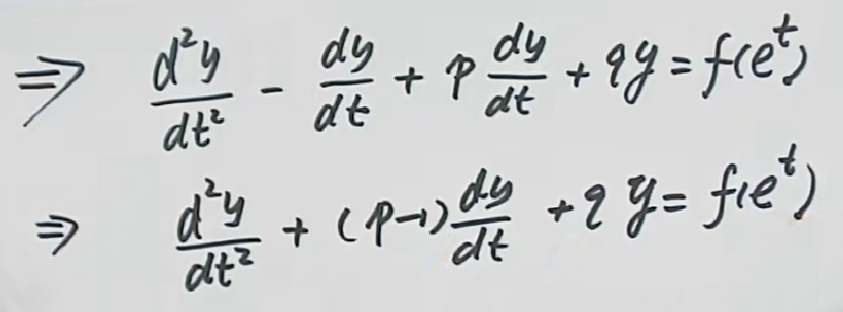 ⇒ d²y/dt² - dy/dt + p dy/dt + qy = f(e^t)
⇒ d²y/dt² + (p-1) dy/dt + qy = f(e^t)